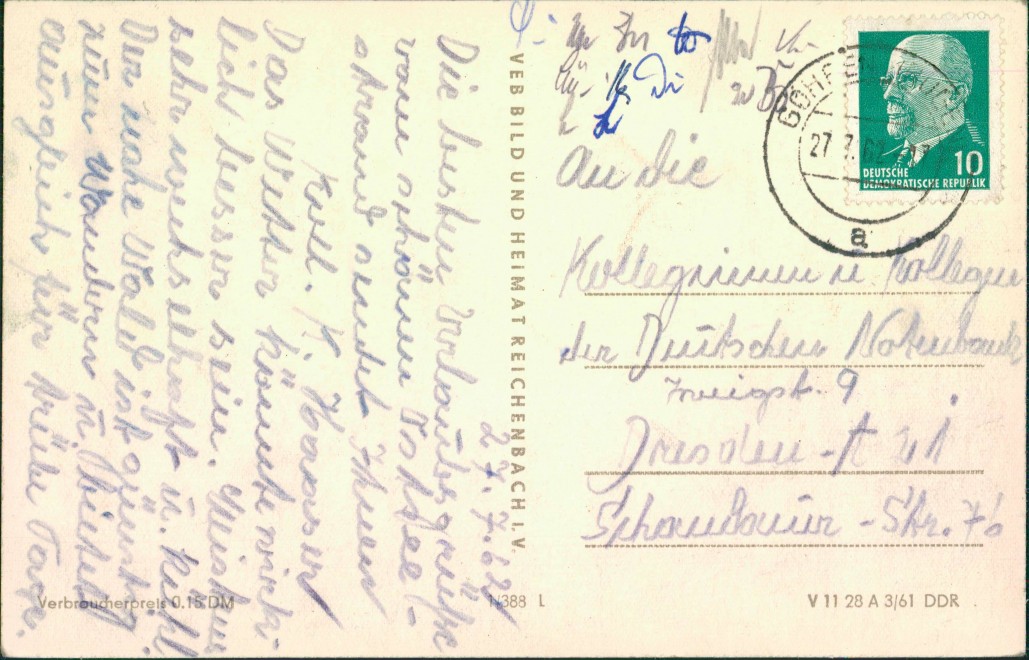 27.7.62
Die besten Urlaubsgrüße
vom schönen Ostsee-
strand sendet Ihnen
Koll. K. Hansen
Das Wetter könnte wirk-
lich besser sein. Meistens
sehr wechselhaft u. kühl
Der nahe Wald ist günstig
zum Wandern u.
Ausgleich für trübe Tage.
VEB BILD UND HEIMAT REICHENBACH I. V.
An die
Kolleginnen u. Kollegen
der Deutschen Notenbank
Zweigst. 9
Dresden-A 21
Schandauer-Str. 76
GÖHREN
27.7.62
a
10
DEUTSCHE
DEMOKRATISCHE REPUBLIK
Verbraucherpreis 0.15 DM
1/388 L
V 11 28 A 3/61 DDR